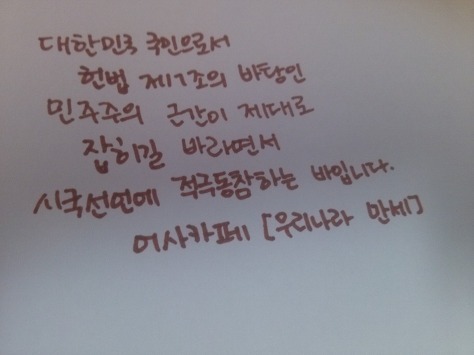 대한민국 국민으로서
헌법 제1조의 바탕인
민주주의 근간이 제대로
잡히길 바라면서
시국선언에 적극동참하는 바입니다.
어사카페 [우리나라 만세]